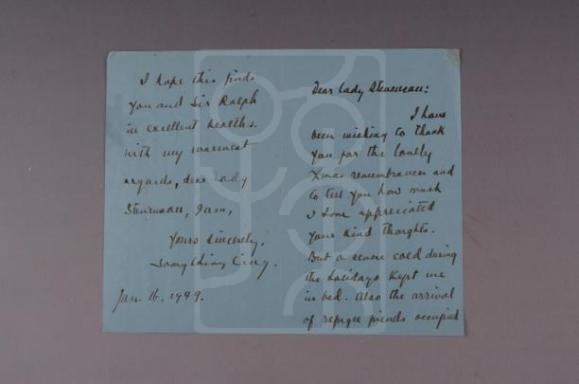 Dear Lady Stevenson:
I have
been wishing to thank
you for the lovely
Xmas remembrances and
to tell you how much
I have appreciated
your kind thoughts.
But a severe cold during
the holidays kept me
in bed. Also the arrival
of refugee friends occupied
I hope this finds
you and Sir Ralph
in excellent health.
With my warmest
regards, dear Lady
Stevenson, I am,
Yours sincerely,
Soong Ching Ling.
Jan. 16, 1949.